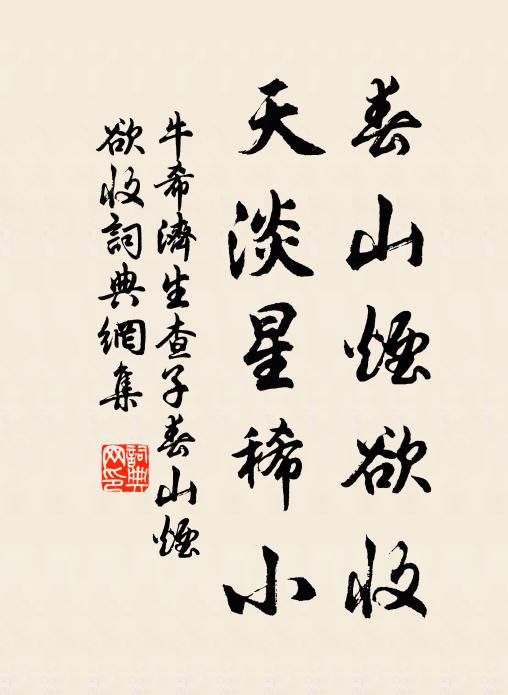 春山煙欲收
天淡星稀小
牛希濟生查子春山煙
欲收詞典網集
詞典
网印